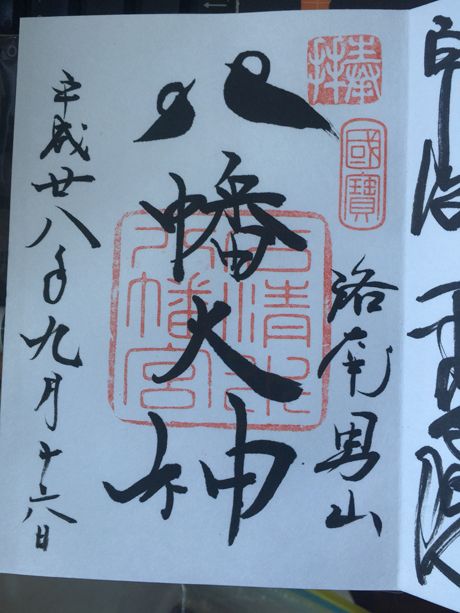 奉拝
國寶
洛南男山
八幡大神
石清水
八幡宮
平成廿八年九月十六日